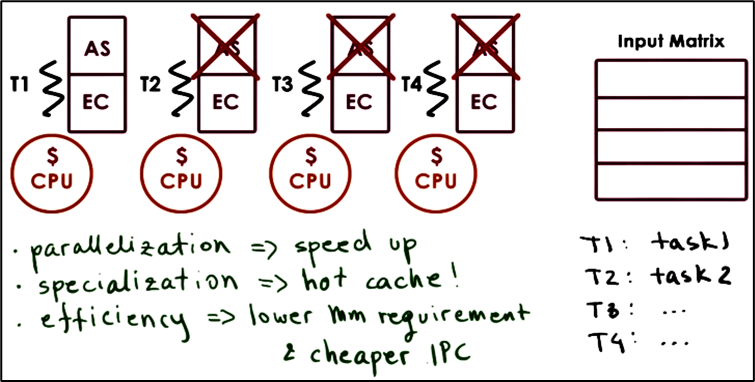 AS
AS
AS
AS
T1
T2
T3
T4
EC
EC
EC
EC
$ CPU
$ CPU
$ CPU
$ CPU
Input Matrix
· parallelization => speed up
· specialization => hot cache!
· efficiency => lower mm requirement
& cheaper IPC
T1: task1
T2: task2
T3: ...
T4: ...